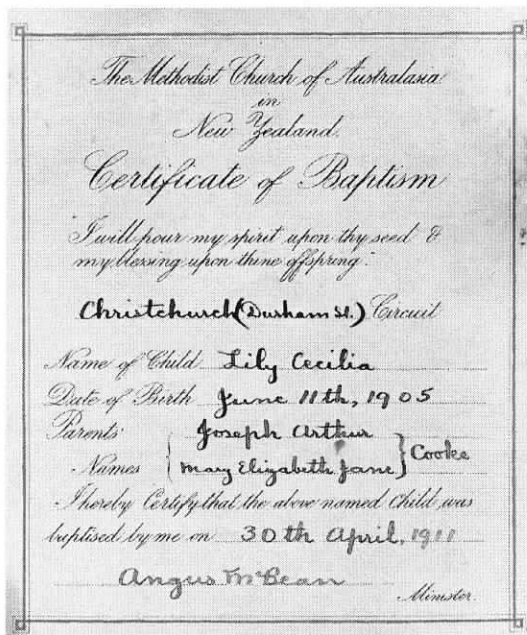 The Methodist Church of Australasia
in
New Zealand.
Certificate of Baptism
I will pour my spirit upon thy seed &
my blessing upon thine offspring.
Christchurch (Durham St.) Circuit
Name of Child Lily Cecilia
Date of Birth June 11th, 1905
Parents' Joseph Arthur
Names Mary Elizabeth Jane Cooke
I hereby Certify that the above named Child was
baptised by me on 30th April, 1911
Angus McBean
Minister